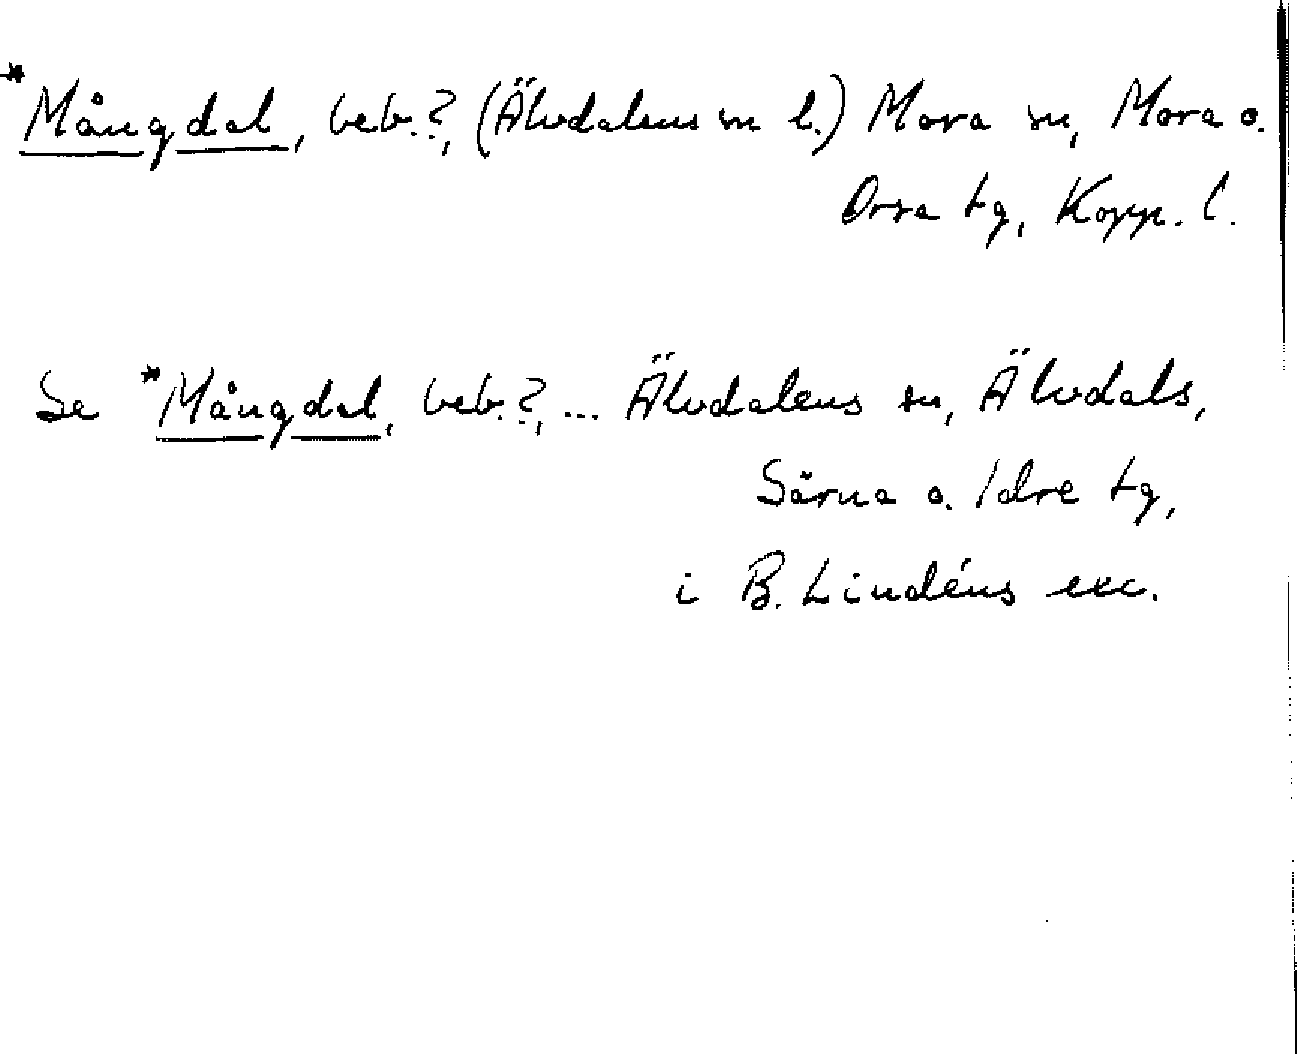 *Mångdal, beb.?, (Älvdalens sn l.) Mora sn, Mora o.
Orsa tg, Kopp. l.
Se *Mångdal, beb.?, ... Älvdalens sn, Älvdals,
Särna o. Idre tg,
i B. Lindéns exc.